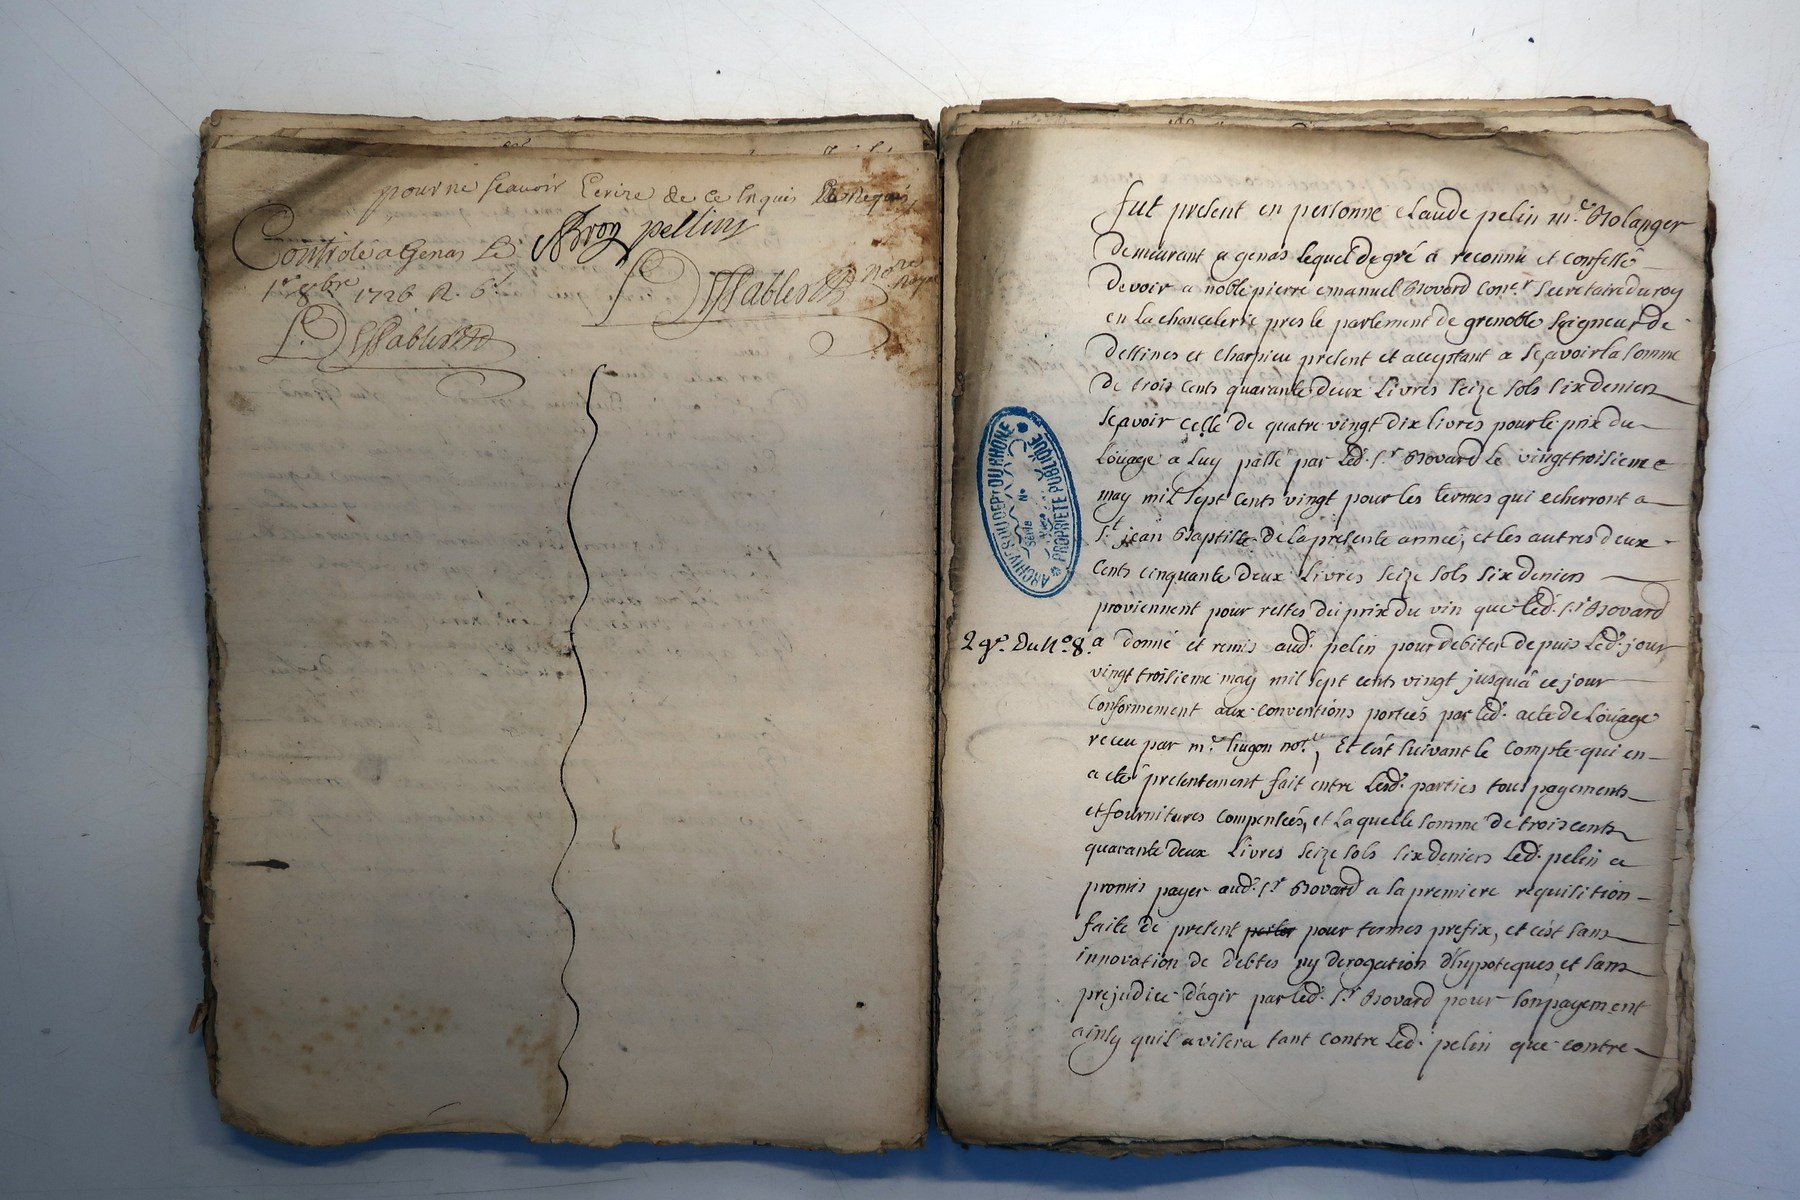 pour ne scavoir Ecrire de ce Enquis Et Requis,
Bron pelliny
Controlé a Genas Le
1er 8bre 1726 R. 6s
DEssablesttt
nore Royal
DEssablesttt
fut present en personne claude pelin m.e Bolanger
demeurant a genas lequel de gré a reconnu et confessé
devoir a noble pierre emanuel Bovard con.er secretaire du roy
en la chancelerie pres le parlement de grenoble seigneur de
dessines et charpieu present et acceptant a sçavoir la somme
de trois cents quarante deux Livres seize sols six deniers
sçavoir celle de quatre vingt dix livres pour le prix du
Loüage a luy passé par led. s.r Bovard le vingt troisieme
may mil sept cents vingt pour les termes qui echerront a
s.t jean Baptiste de la presente année, et les autres deux
cents cinquante deux Livres seize sols six deniers
proviennent pour restes du prix du vin que led. s.r Bovard
2 g.e Du N.o 8.
a donné et remis aud. pelin pour debiter depuis Led. jour
vingt troisieme may mil sept cents vingt jusqu'a ce jour
conformement aux conventions portées par led. acte de Loüage
receu par m.e hugon not.re, Et c'est suivant le compte qui en
a eté presentement fait entre Lesd. parties tous payements
et fournitures compensées, et la quelle somme de trois cents
quarante deux Livres seize sols six deniers Led. pelin a
promis payer aud. s.r Bovard a la premiere requisition
faite de present pour termes prefix, et c'est sans
innovation de debtes ny derogation d'hypoteques, et sans
prejudice d'agir par led. s.r Bovard pour son payement
ainsy quil avisera tant contre Led. pelin que contre
ARCHIVES DU DEPt DU RHÔNE
PROPRIÉTÉ PUBLIQUE
Série
No